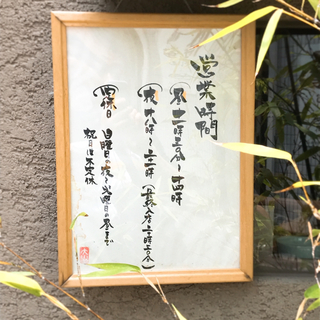 営業時間
(昼)十一時三〇分〜十四時
(夜)十八時〜二十二時(最終入店二十時三〇分)
(店休日)日曜日の夜〜火曜日の昼まで
祝日は不定休